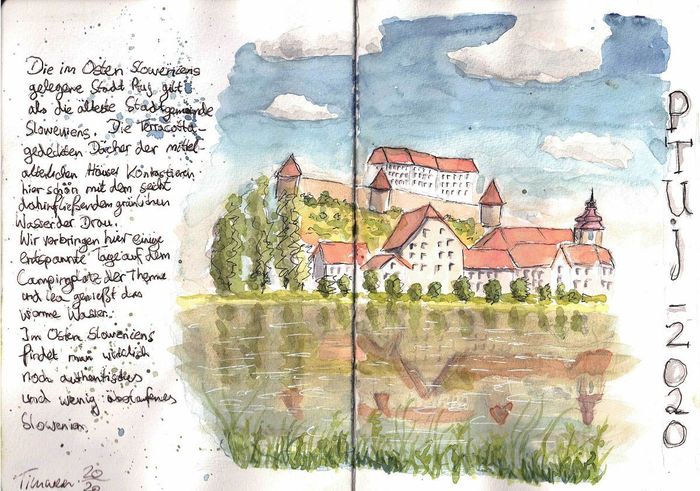 Die im Osten Sloweniens
gelegene Stadt Ptuj gilt
als die älteste Stadtgemeinde
Sloweniens. Die Terracotta-
gedeckten Dächer der mittel-
alterlichen Häuser kontrastieren
hier schön mit dem seicht
dahinfließendem grünlichen
Wasser der Drau.
Wir verbringen hier einige
entspannte Tage auf dem
Campingplatz der Therme
und Lea genießt das
warme Wasser.
Im Osten Sloweniens
findet man wirklich
noch authentisches
und wenig
Slowenien.
20
20
PTUJ - 2020